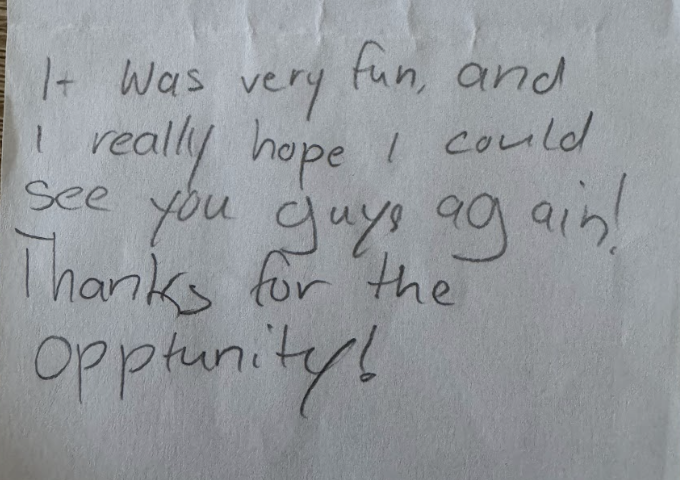 It was very fun, and
I really hope I could
see you guys again!
Thanks for the
opptunity!